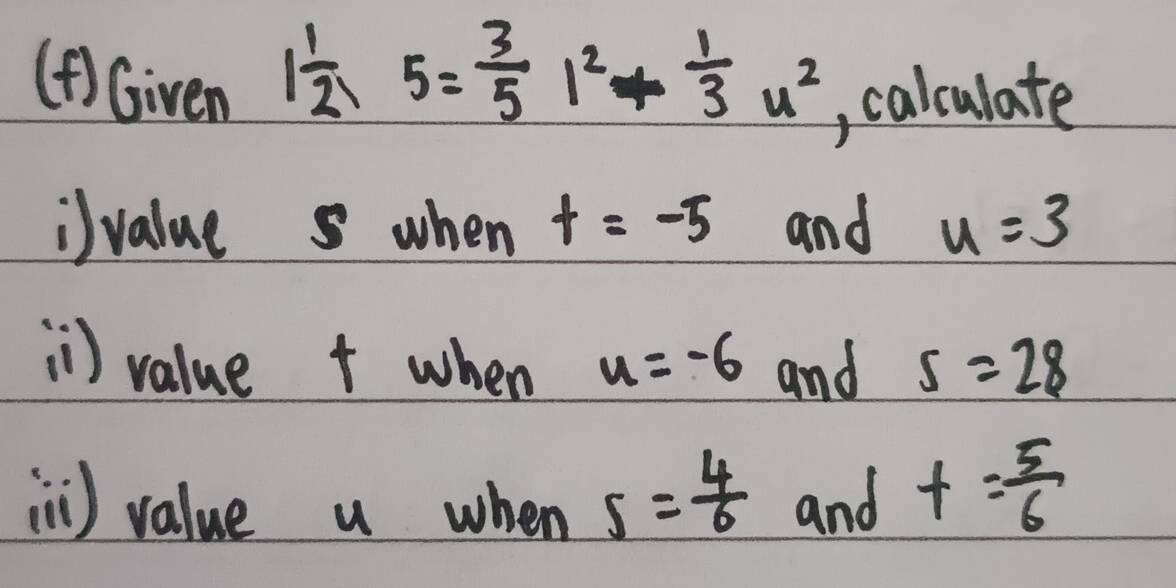 (f) Given 1 1/2 5 = 3/5 1² + 1/3 u², calculate
i) value s when t = -5 and u = 3
ii) value t when u = -6 and s = 28
iii) value u when s = 4/6 and t = 5/6